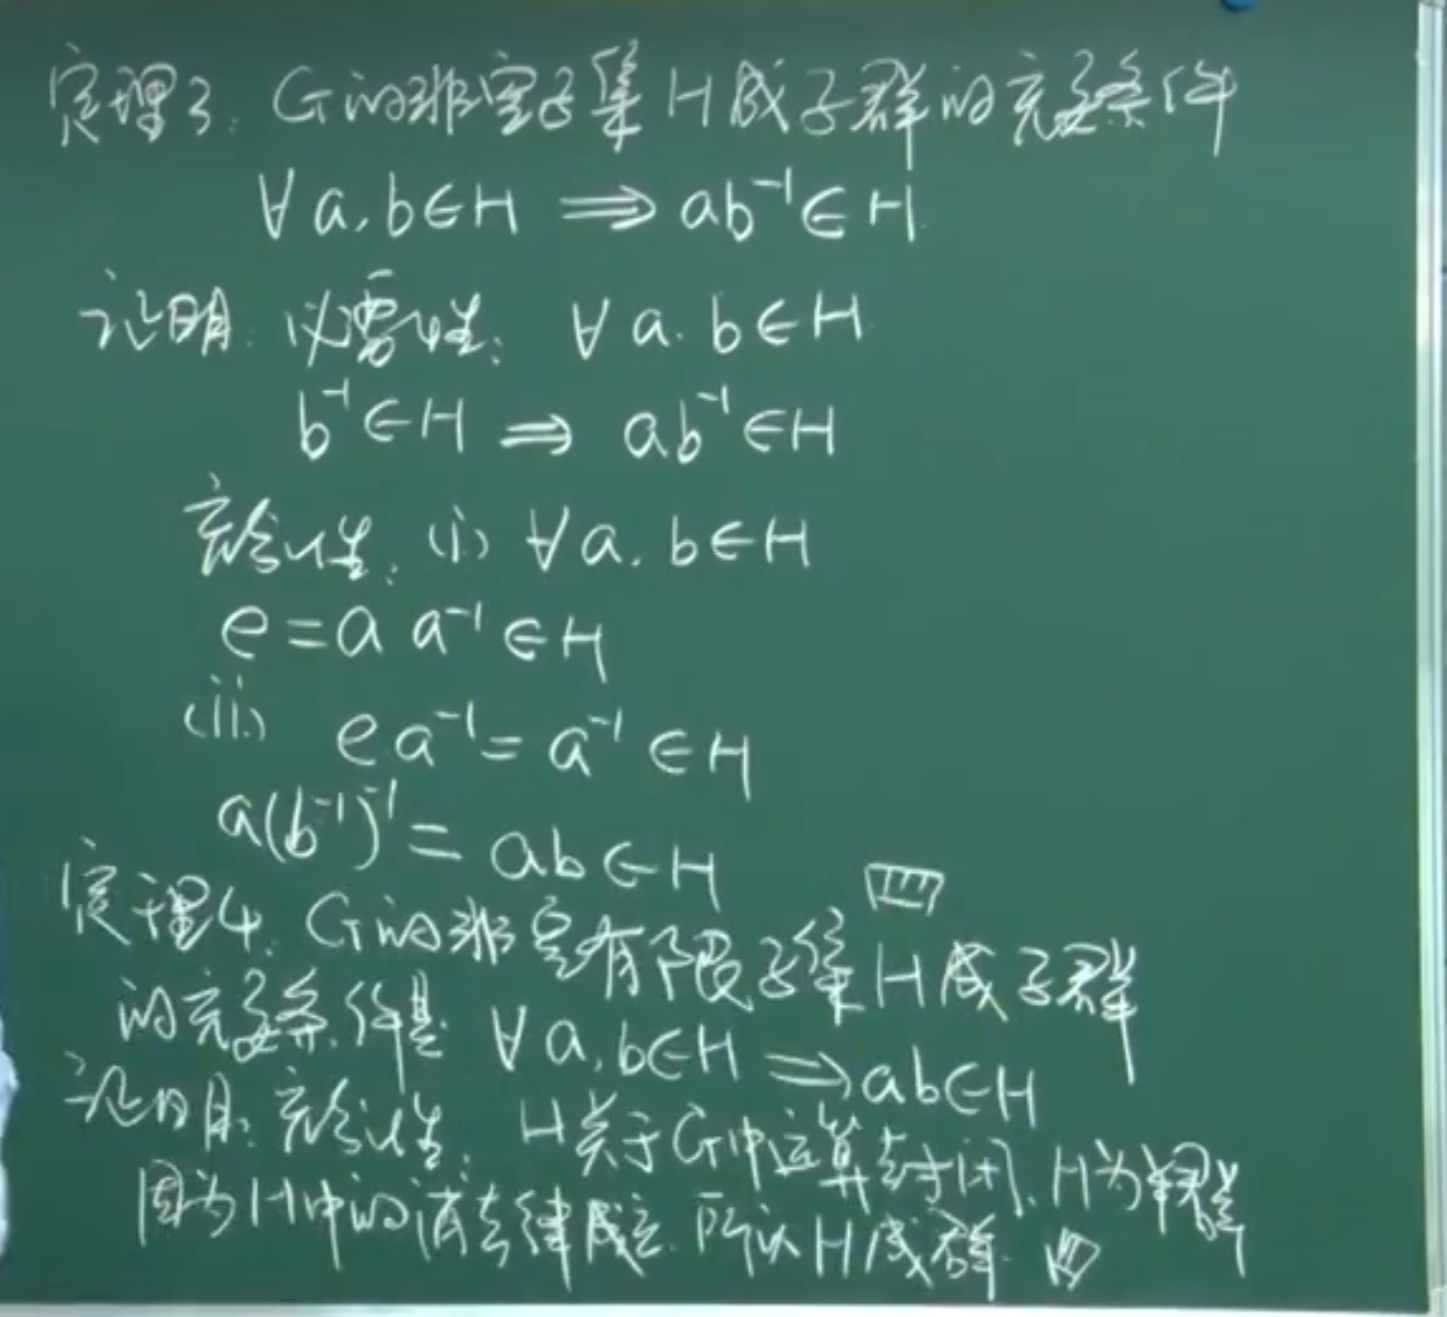 定理3. G的非空子集H成子群的充要条件
∀a,b∈H ⟹ ab⁻¹∈H
证明: 必要性: ∀a.b∈H
b⁻¹∈H ⟹ ab⁻¹∈H
充分性: (i) ∀a.b∈H
e=a a⁻¹∈H
(ii) e a⁻¹=a⁻¹∈H
a(b⁻¹)⁻¹=ab∈H
定理4. G的非空有限子集H成子群
的充要条件是 ∀a,b∈H ⟹ab∈H
证明: 充分性: H关于G中运算封闭. H为半群
因为H中的消去律成立. 所以H成群.